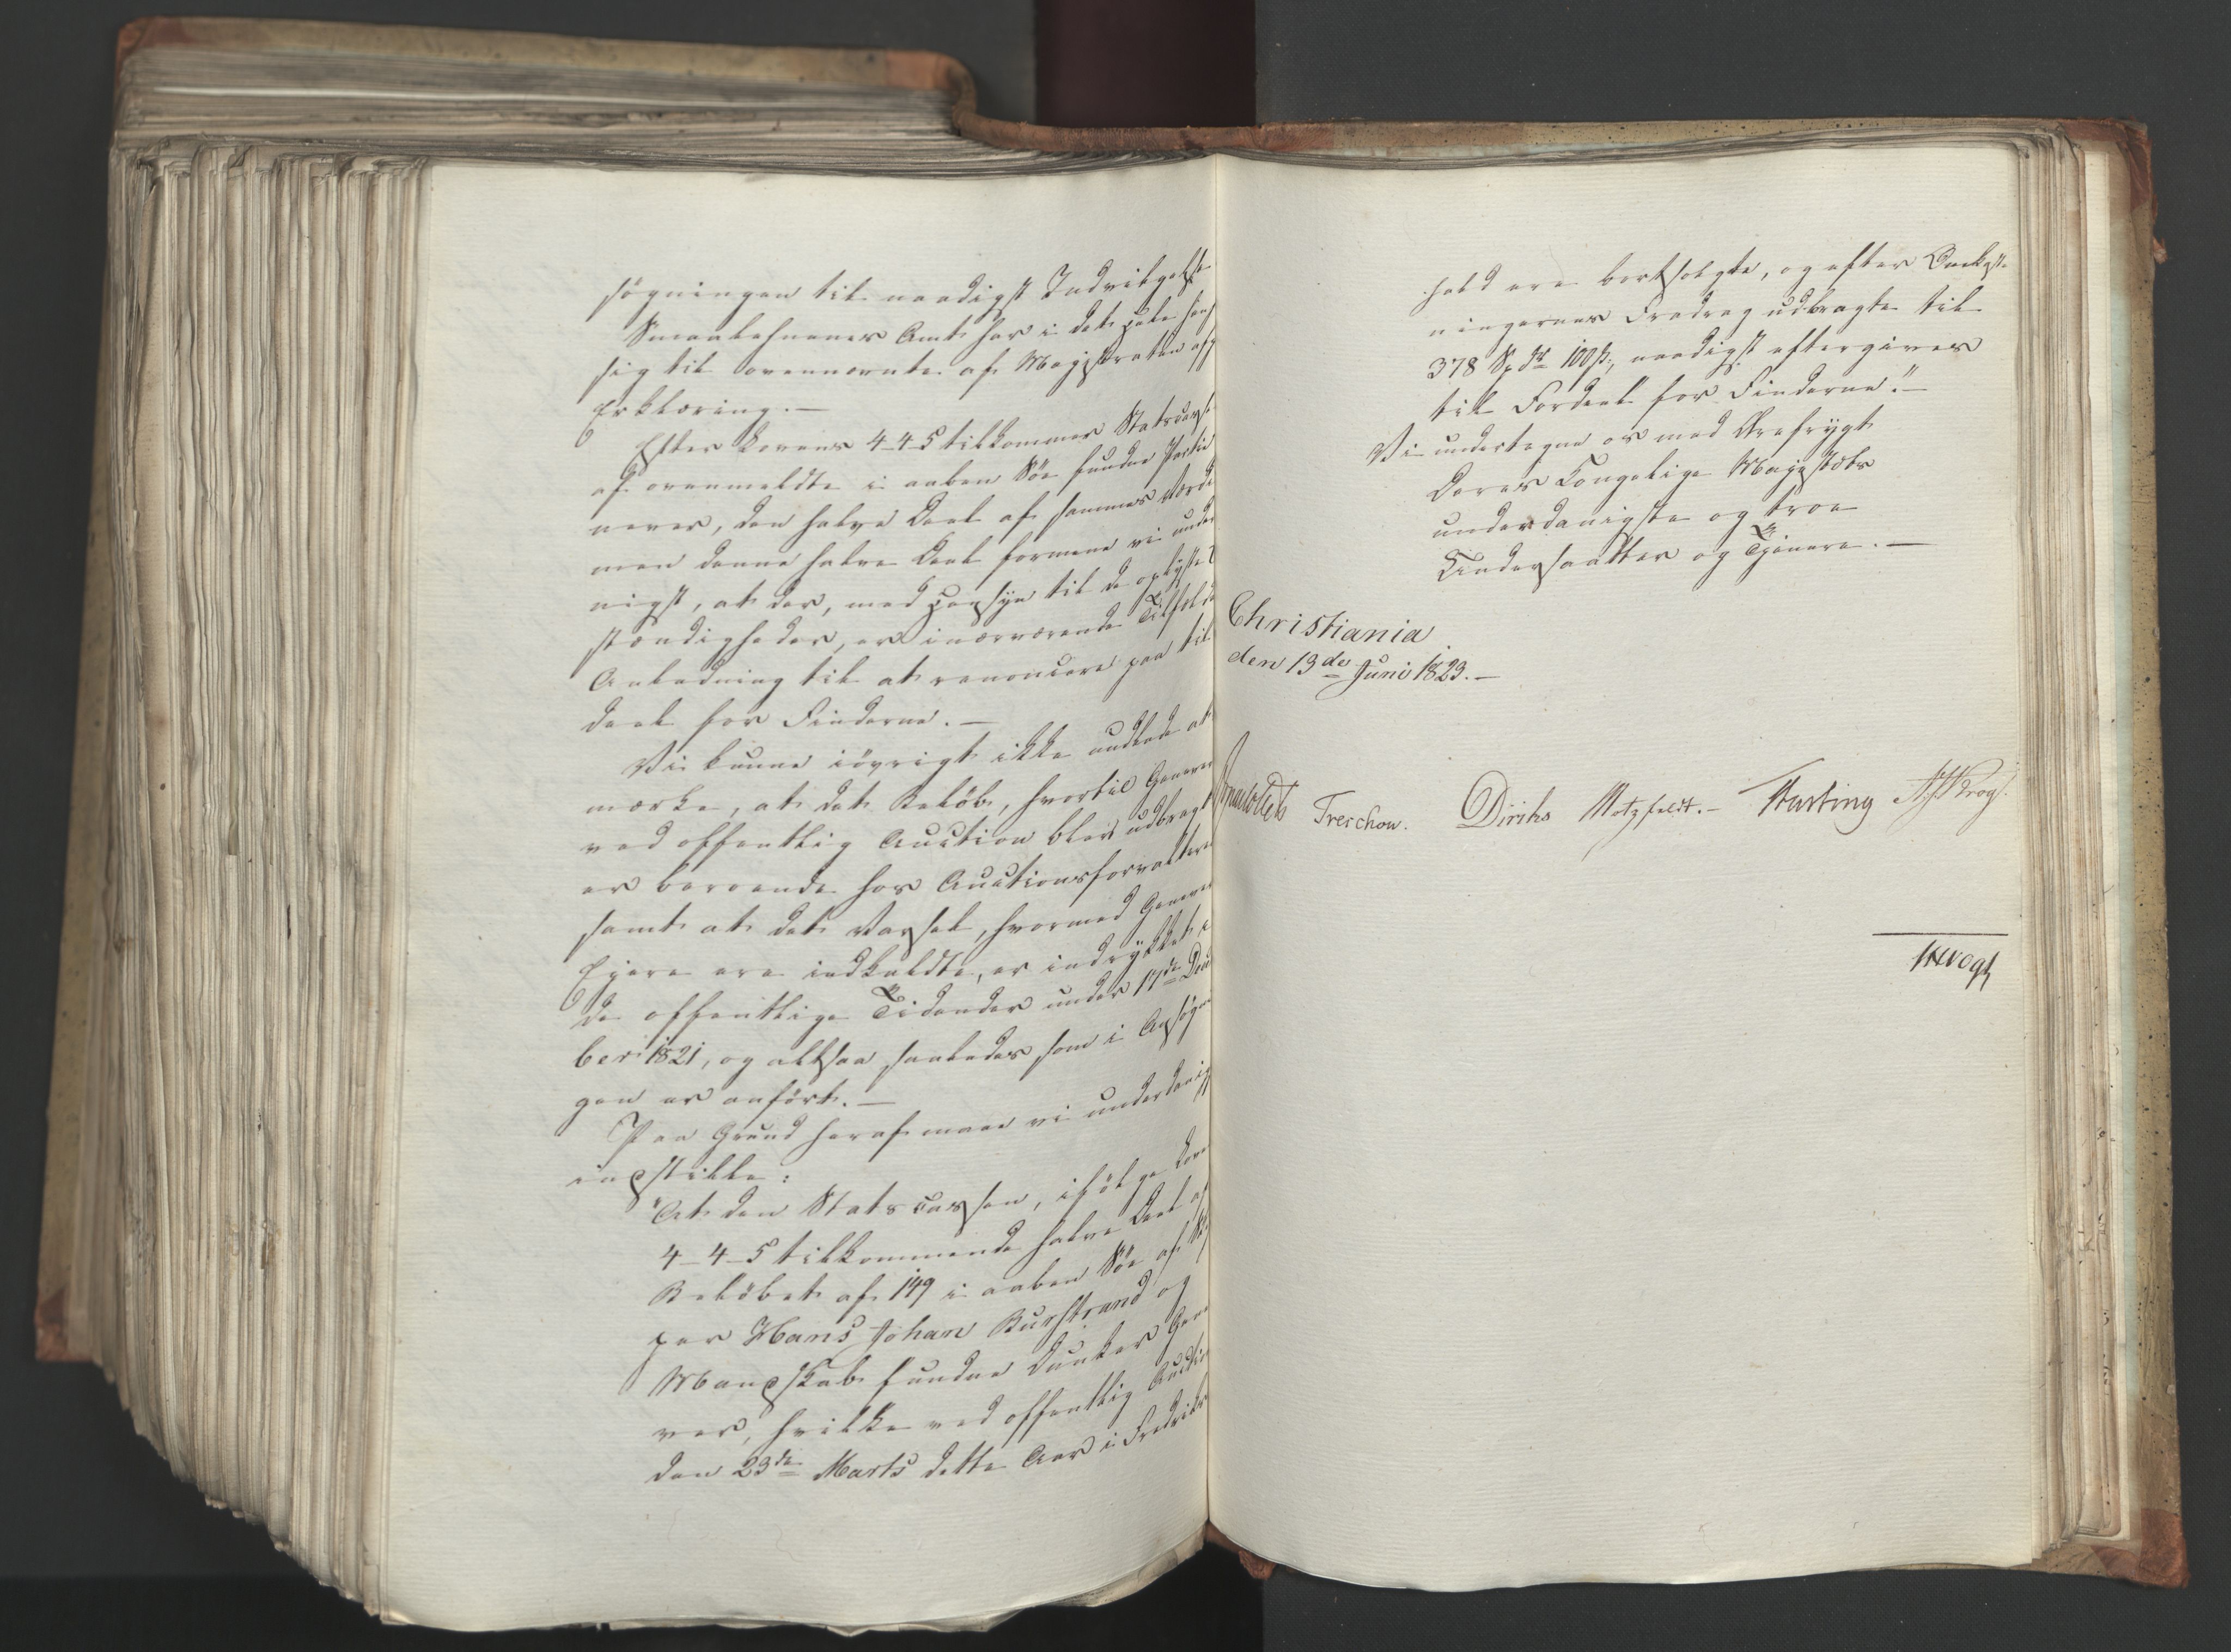 søgningen til naadigst Indvilgelse
Smaalehnenes Amt har i det hele hen-
sig til ovennævnte af Magistraten afg
Erklæring. —
Efter Lovens 4-4-5 tilkommer Statscass
af ovenmeldte i aaben Søe fundne Partie
never, den halve Deel af sammes Værdi
men denne halve Deel formene vi under
nigst, at der, med Hensyn til de oplyste
stændigheder, er i nærværende Tilfælde
Anledning til at renoncere paa til
deel for Finderne. —
Vi kunne iøvrigt ikke undlade at
mærke, at det Beløb, hvortil Genever
ved offentlig Auction blev udbragt
er beroende hos Auctionsforvaltere
samt at det Varsel, hvormed Genever
Ejere ere indkaldte, er indrykket i
de offentlige Tidender under 11de Dec
ber 1821, og altsaa saaledes som i Ansøgn
gen er anført. —
Paa Grund heraf maae vi underdanig
indstille:
"At den Statscassen, ifølge Love
4-4-5 tilkommende halve Deel af
Beløbet af 149 i aaben Søe af Ski
per Hans Johan Burstrand og
Mandskab fundne Dunker Gene
ver, hvilke ved offentlig Auctio
den 23de Marts dette Aar i Fredriks
hald ere bortsolgte, og efter Omkost-
ningernes Fradrag udbragte til
378 Spdr 100 s, naadigst eftergives
til Fordeel for Finderne." —
Vi undertegne os med Ærefrygt
Deres Kongelige Majestæts
underdanigste og troe
Undersaatter og Tjenere. —
Christiania
den 13de Juni 1823. —
Treschow. Diriks Motzfeldt. — Fasting Krog.